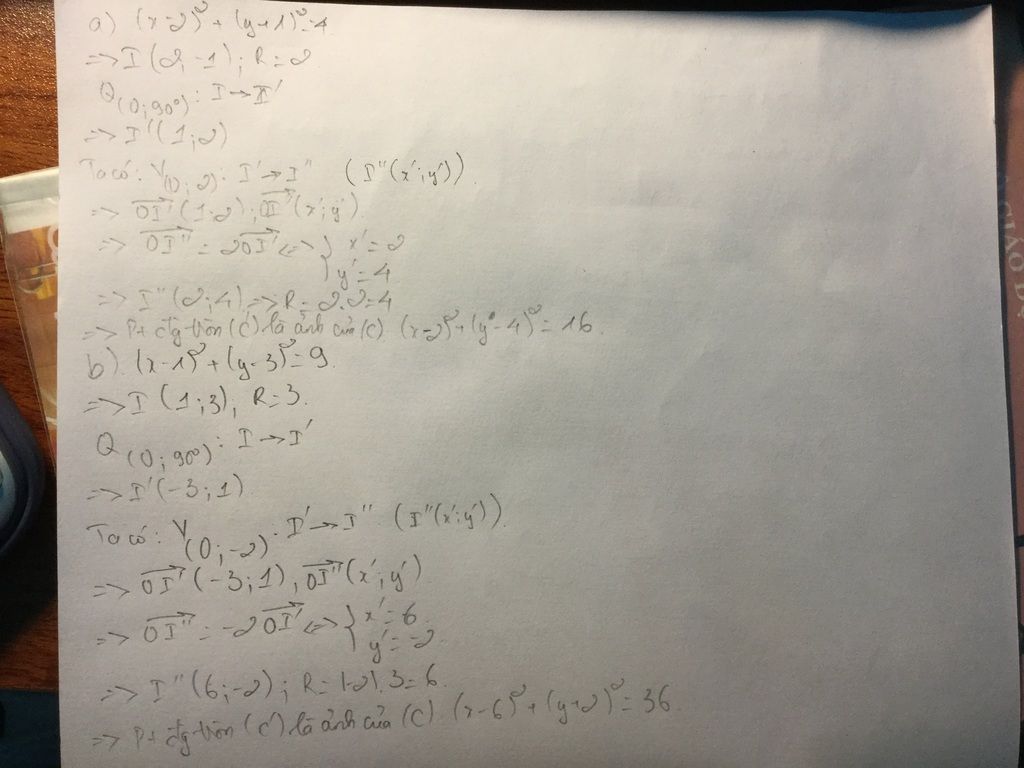 a) (x-2)² + (y+1)² = 4.
=> I (2;-1); R = 2
Q(0;90°): I → I'
=> I'(1;2)
Ta có: V(0;2): I' → I'' (I''(x';y')).
=> OI'(1;2); OI''(x';y').
=> OI'' = 2OI' <=> { x' = 2
y' = 4
=> I''(2;4) => R = 2.2 = 4
=> Pt đtg tròn (C') là ảnh của (C) (x-2)² + (y-4)² = 16.
b). (x-1)² + (y-3)² = 9.
=> I (1;3), R = 3.
Q(0;90°): I → I'
=> I'(-3;1).
Ta có: V(0;-2): I' → I'' (I''(x';y')).
=> OI'(-3;1), OI''(x';y')
=> OI'' = -2OI' <=> { x' = 6.
y' = -2
=> I''(6;-2); R = |-2|.3 = 6.
=> Pt đtg tròn (C') là ảnh của (C) (x-6)² + (y+2)² = 36.
GIÁO D